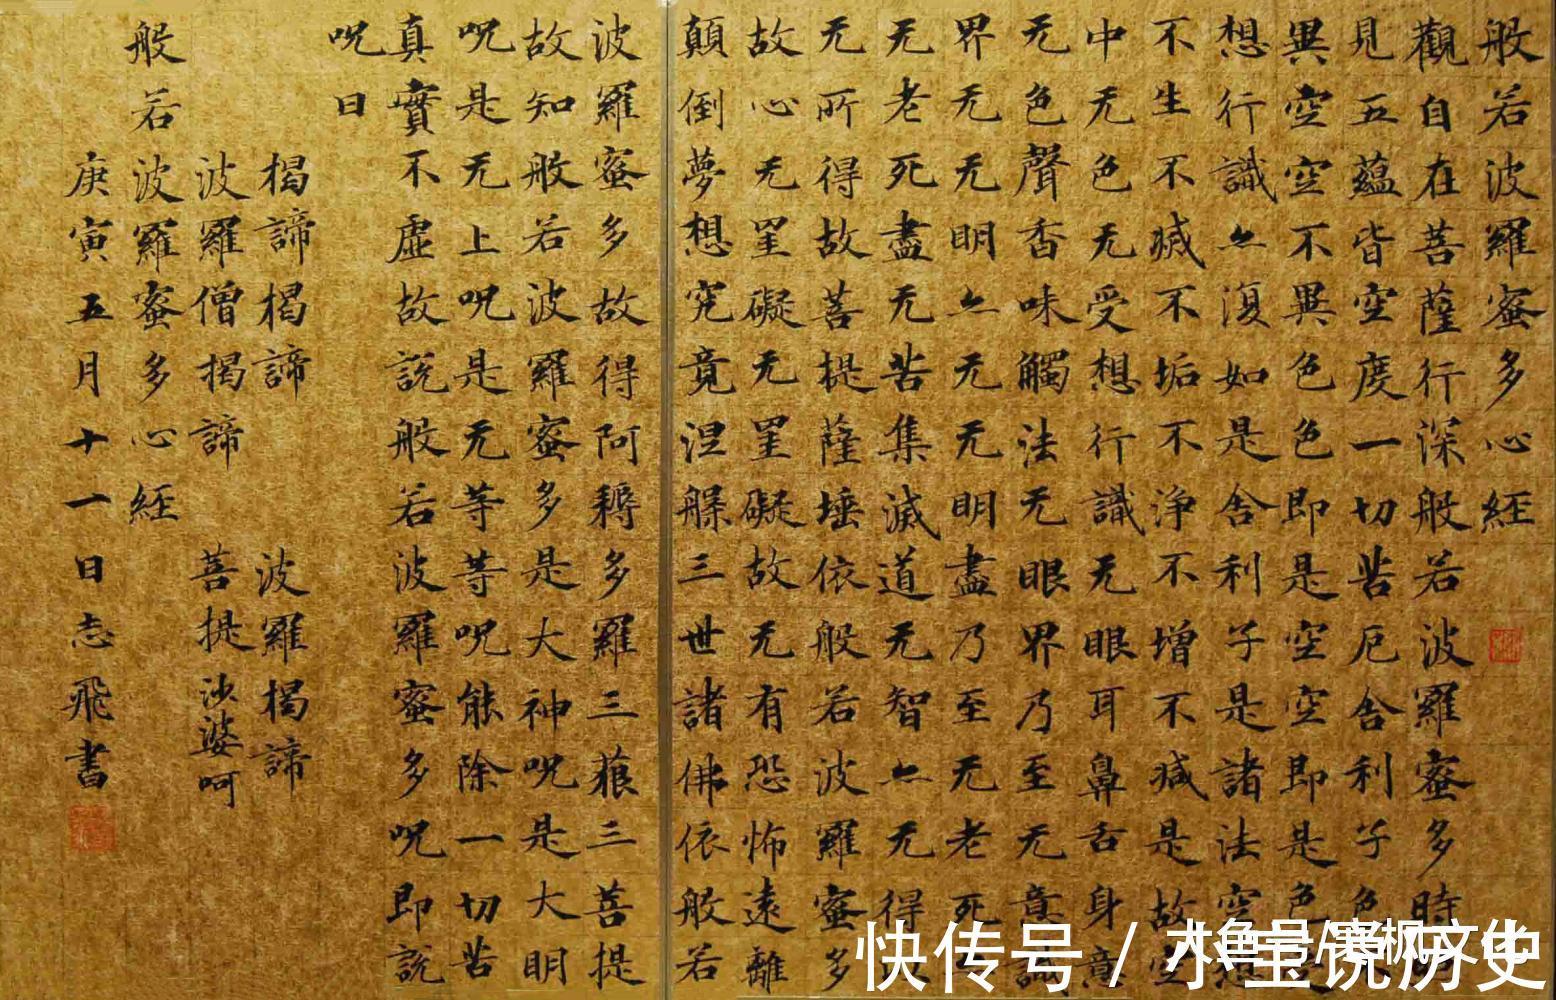 般若波羅蜜多心経
觀自在菩薩行深般若波羅蜜多時
見五蘊皆空度一切苦厄舍利子色
異空空不異色色即是空空即是色
想行識亦復如是舍利子是諸法空
不生不滅不垢不浄不增不減是故空
中无色无受想行識无眼耳鼻舌身意
无色聲香味觸法无眼界乃至无意識
界无无明亦无无明盡乃至无老死
无老死盡无苦集滅道无智亦无得
无所得故菩提薩埵依般若波羅蜜多
故心无罣礙无罣礙故无有恐怖遠離
顛倒夢想究竟涅槃三世諸佛依般若
波羅蜜多故得阿耨多羅三藐三菩提
故知般若波羅蜜多是大神呪是大明
呪是无上呪是无等等呪能除一切苦
真實不虛故説般若波羅蜜多呪即説
呪曰
揭諦揭諦 波羅揭諦
波羅僧揭諦 菩提沙婆呵
般若波羅蜜多心経
庚寅五月十一日志飛書
快传号 / 小宝说历史
大鱼号/寒枫文化